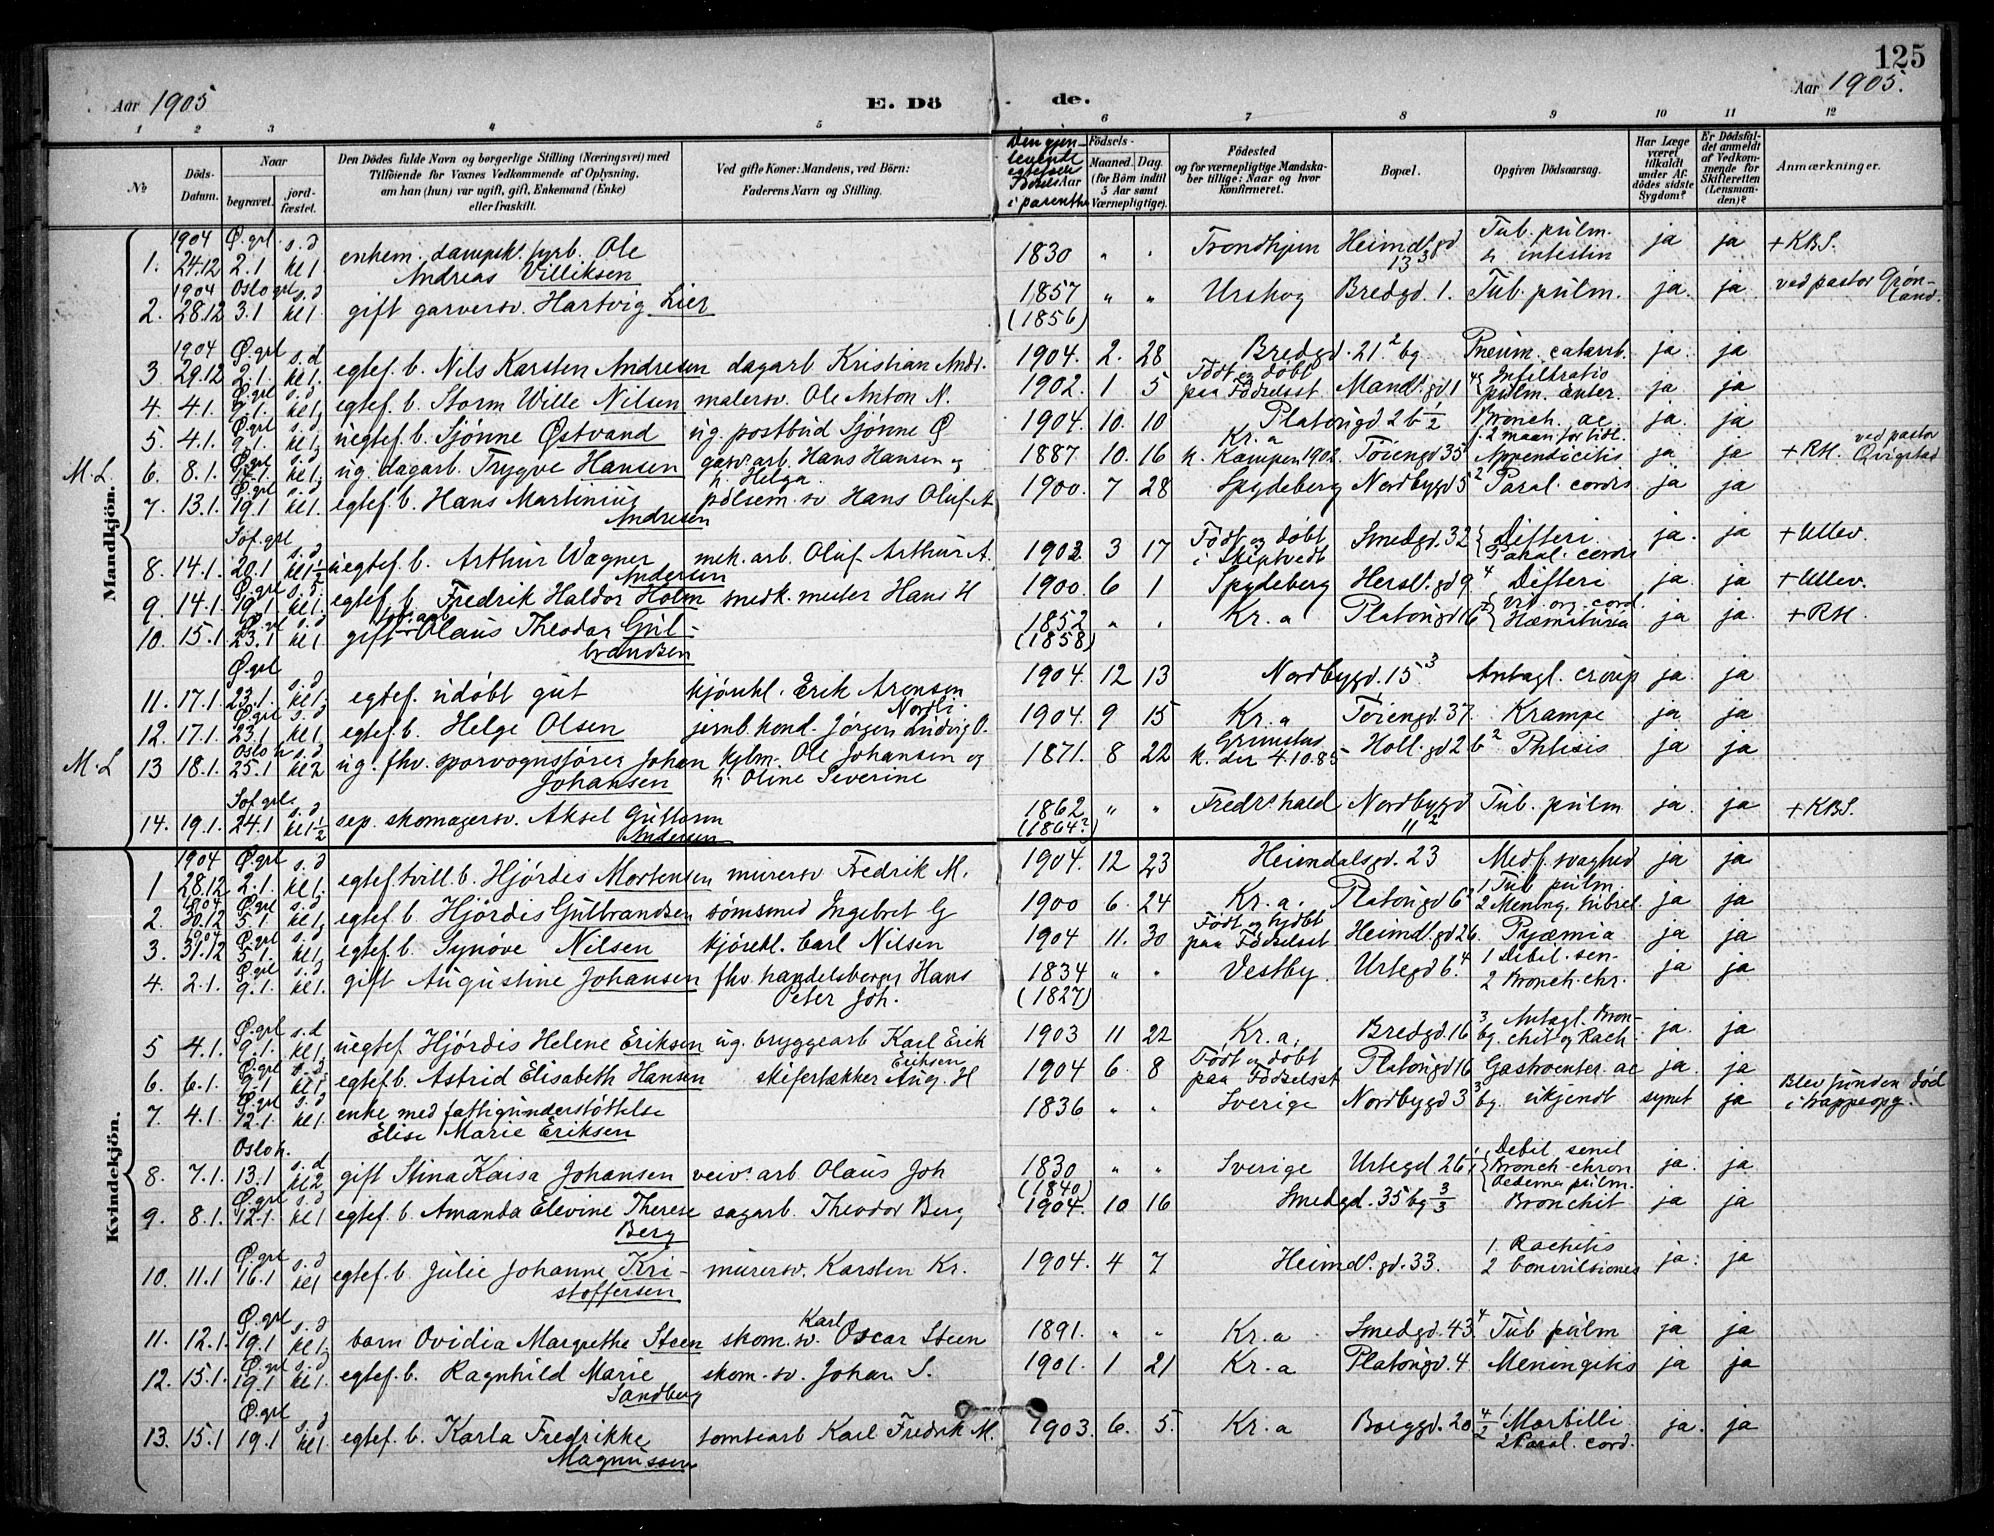 125
Aar 1905
E. Dö
de.
Aar 1905.
1 2 3 4 5 6 7 8 9 10 11 12
No
Döds-Datum.
Naar
begravet.
jord-fæstet.
Den Dödes fulde Navn og borgerlige Stilling (Næringsvei) med
Tilföiende for Voxnes Vedkommende af Oplysning,
om han (hun) var ugift, gift, Enkemand (Enke)
eller fraskilt.
Ved gifte Koner: Mandens, ved Börn:
Faderens Navn og Stilling.
Den gjen-
levende
i parenthes
Födsels-
Aar
Maaned. Dag.
(for Börn indtil
5 Aar samt
Værnepligtige).
Födested
og for værnepligtige Mandska-
ber tillige: Naar og hvor
konfirmeret.
Bopæl.
Opgiven Dödsaarsag.
Har Læge
været
tilkaldt
under Af-
dödes sidste
Sygdom?
Er Dödsfal-
det anmeldt
af Vedkom-
mende for
Skifteretten
(Lensman-
den)?
Anmærkninger.
Mandkjön.
1904 Ø.grl s.d
1. 24.12 2.1 kl 1. enkem. dampsk. fyrb. Ole 1830 " " Trondhjem Heimdlgd 13 3 Tub. pulm. & intestin ja ja + KBS.
Andreas Villiksen
1904 Oslo grl s.d
2. 28.12 3.1 kl 1. gift garversv. Hartvig Lier 1857 " " Urskog Bredgd. 1. Tub. pulm. ja. ja. ved pastor Grön-
(1856) land.
1904 Ø.grl s.d
3 29.12 2.1. kl 1. egtef. b. Nils Karsten Andresen dagarb Kristian Andr. 1904. 2. 28 Bredgd. 21 2 bg Pneum. catarrh. ja. ja
4. 4.1. 9.1. kl 1 egtef. b. Storm Wille Nilsen malersv. Ole Anton N. 1902. 1 5 Födt og döbt paa Födselsst Mandlgd 1 Infiltratio pulm. enter. ja ja
5. 4.1. 9.1. kl 1 uegtef. b. Sjönne Østvand ug. postbud Sjönne Ø 1904. 10. 10 Platousgd 2 b 1/2 Bronch. ac ja. ja
M. L 6. 8.1. 12.1. kl 1. ug. dagarb. Trygve Hansen garv. arb. Hans Hansen og h. Helga 1887 10. 16 Kr.a k. Kampen 1902. Töiengd 35 Appendicitis ja ja + RH. ved pastor Qvigstad
7. 13.1. 19.1 kl 1. egtef. b. Hans Martinius pölsem. sv Hans Oluf A 1900. 7 28 Spydeberg Nordbygd 5 2 Paral. cordis ja ja
Andresen
Sof. grl s.d
8. 14.1. 20.1 kl 1 1/2 uegtef. b. Arthur Wagner mek. arb. Oluf Arthur A. 1902. 3 17 Födt og döbt i Skiptvedt Smedgd. 32 Difteri. Paral. cordis ja. ja + Ullev.
Andersen
9. 14.1. 19.1 kl 1. egtef. b. Fredrik Haldor Holm snedk. mester Hans H 1900. 6 1 Spydeberg Hersl. gd 9 4 Difteri ja. ja + Ullev.
10. 15.1 23.1 kl 1. gift Olaus Theodor Gul- 1852 " " Kr. a Platousgd 16 Vit. org. cord. Hæmaturia ja ja. + RH.
brandsen (1858)
Ø.grl s.d
11. 17.1 23.1. kl 1. egtef. udöbt gut kjörekl. Erik Aronsen 1904. 12 13 Nordbygd. 15 3 Antagl. croup ja ja
Nordli.
12. 17.1. 23.1 kl 1. egtef. b. Helge Olsen jernb. kond. Jörgen Ludvig O. 1904. 9 15 Kr. a Töiengd. 37. Krampe ja ja
M. L 13 18.1. Oslo h 25.1 s.d kl 2 ug. fhv. sporvognsförer Johan kjlm. Ole Johansen og 1871. 8 22 k. der 4.10.85 Holl. gd 2 b 2 Phtisis ja ja
Johansen h. Oline Severine
Sof. grl. s.d
14. 19.1. 24.1 kl 1 1/2 sep. skomagersv. Aksel Guttorm 1862 " " Fredr.hald Nordbygd 11 2 Tub. pulm ja. ja + KBS.
Andersen (1864?)
Kvindekjön.
1904 Ø.grl s.d
1 28.12 2.1. kl 1. egtef. tvill. b. Hjördis Mortensen murersv Fredrik M. 1904. 12 23 Heimdalsgd. 23 Medf. svaghed ja ja
2. 30.12 5.1 kl 1 egtef. b. Hjördis Gulbrandsen sömsmed Ingebret G 1900 6. 24 Kr. a. Platousgd 6 2 1 Tub pulm. 2 Mening. tubrcl. ja ja
3. 31.12 5.1. kl 1. egtef. b. Synöve Nilsen kjörekl. Carl Nilsen 1904 11. 30 Födt og hjdbt paa Födselsst Heimdlgd 26. Pyæmia ja ja
4. 2.1. 9.1. kl 1. gift Augustine Johansen fhv. handelsborger Hans 1834 " " Vestby. Urtegd 6. 4 1 Debil. sen. 2 Bronch. chr. ja ja
Peter Joh. (1827)
5 4.1. 9.1. kl 1. uegtef. Hjördis Helene Eriksen ug. bryggearb Karl Erik 1903 11 22 Kr. a. Bredgd. 16 3 bg. Antagl. Bron- chit og Rach. ja. ja
Eriksen
6. 6.1. 9.1 kl 1 egtef. b. Astrid Elisabeth Hansen skifertækker Aug. H 1904 6. 8 Födt og döbt paa Födselsst Platousgd 16 Gastroenter. ac ja. ja
7. 4.1. 12.1. kl 1. enke med fattigunderstöttelse 1836 " " Sverige Nordbygd 3 3 bg. ukjendt synet ja Blev funden död i trappeopg.
Elise Marie Eriksen
Oslo h.
8. 7.1. 13.1 s.d kl 2 gift Stina Kaisa Johansen veiv. arb Olaus Joh 1830 " " Sverige Urtegd 26 1/1 Debil. senil Bronch. chron Oedema pulm. ja. ja
(1840)
9. 8.1. 12.1. kl 1 egtef. b. Amanda Elevine Therese sagarb. Theodor Berg 1904. 10 16 Smedgd. 35 bg 3/3 Bronchit ja ja
Berg
10. 11.1 16.1 kl 1 egtef. b. Julie Johanne Kri- murersv. Karsten Kr. 1904. 4 7 Heimdl. gd. 33. 1. Rachitis 2 Convulsiones ja. ja
stoffersen
Ø.grl s.d
11. 12.1. 19.1 kl 1. barn Ovidia Margrethe Steen skom. sv. Karl Oscar Steen 1891. " " Kr. a Smedgd. 43 4 Tub pulm ja ja
12. 15.1. 19.1 kl 1. egtef. b. Ragnhild Marie skom. sv. Johan S. 1901. 1 21 Kr. a Platousgd. 4 Meningitis ja ja
Sandberg
Ø.grl s.d
13. 15.1 19.1 kl 1 egtef. b. Karla Fredrikke tomtearb Karl Fredrik M. 1903. 6. 5. Kr. a Borggd. 20 4/2 1 Morbilli 2 Paral. cord. ja. ja
Magnussen